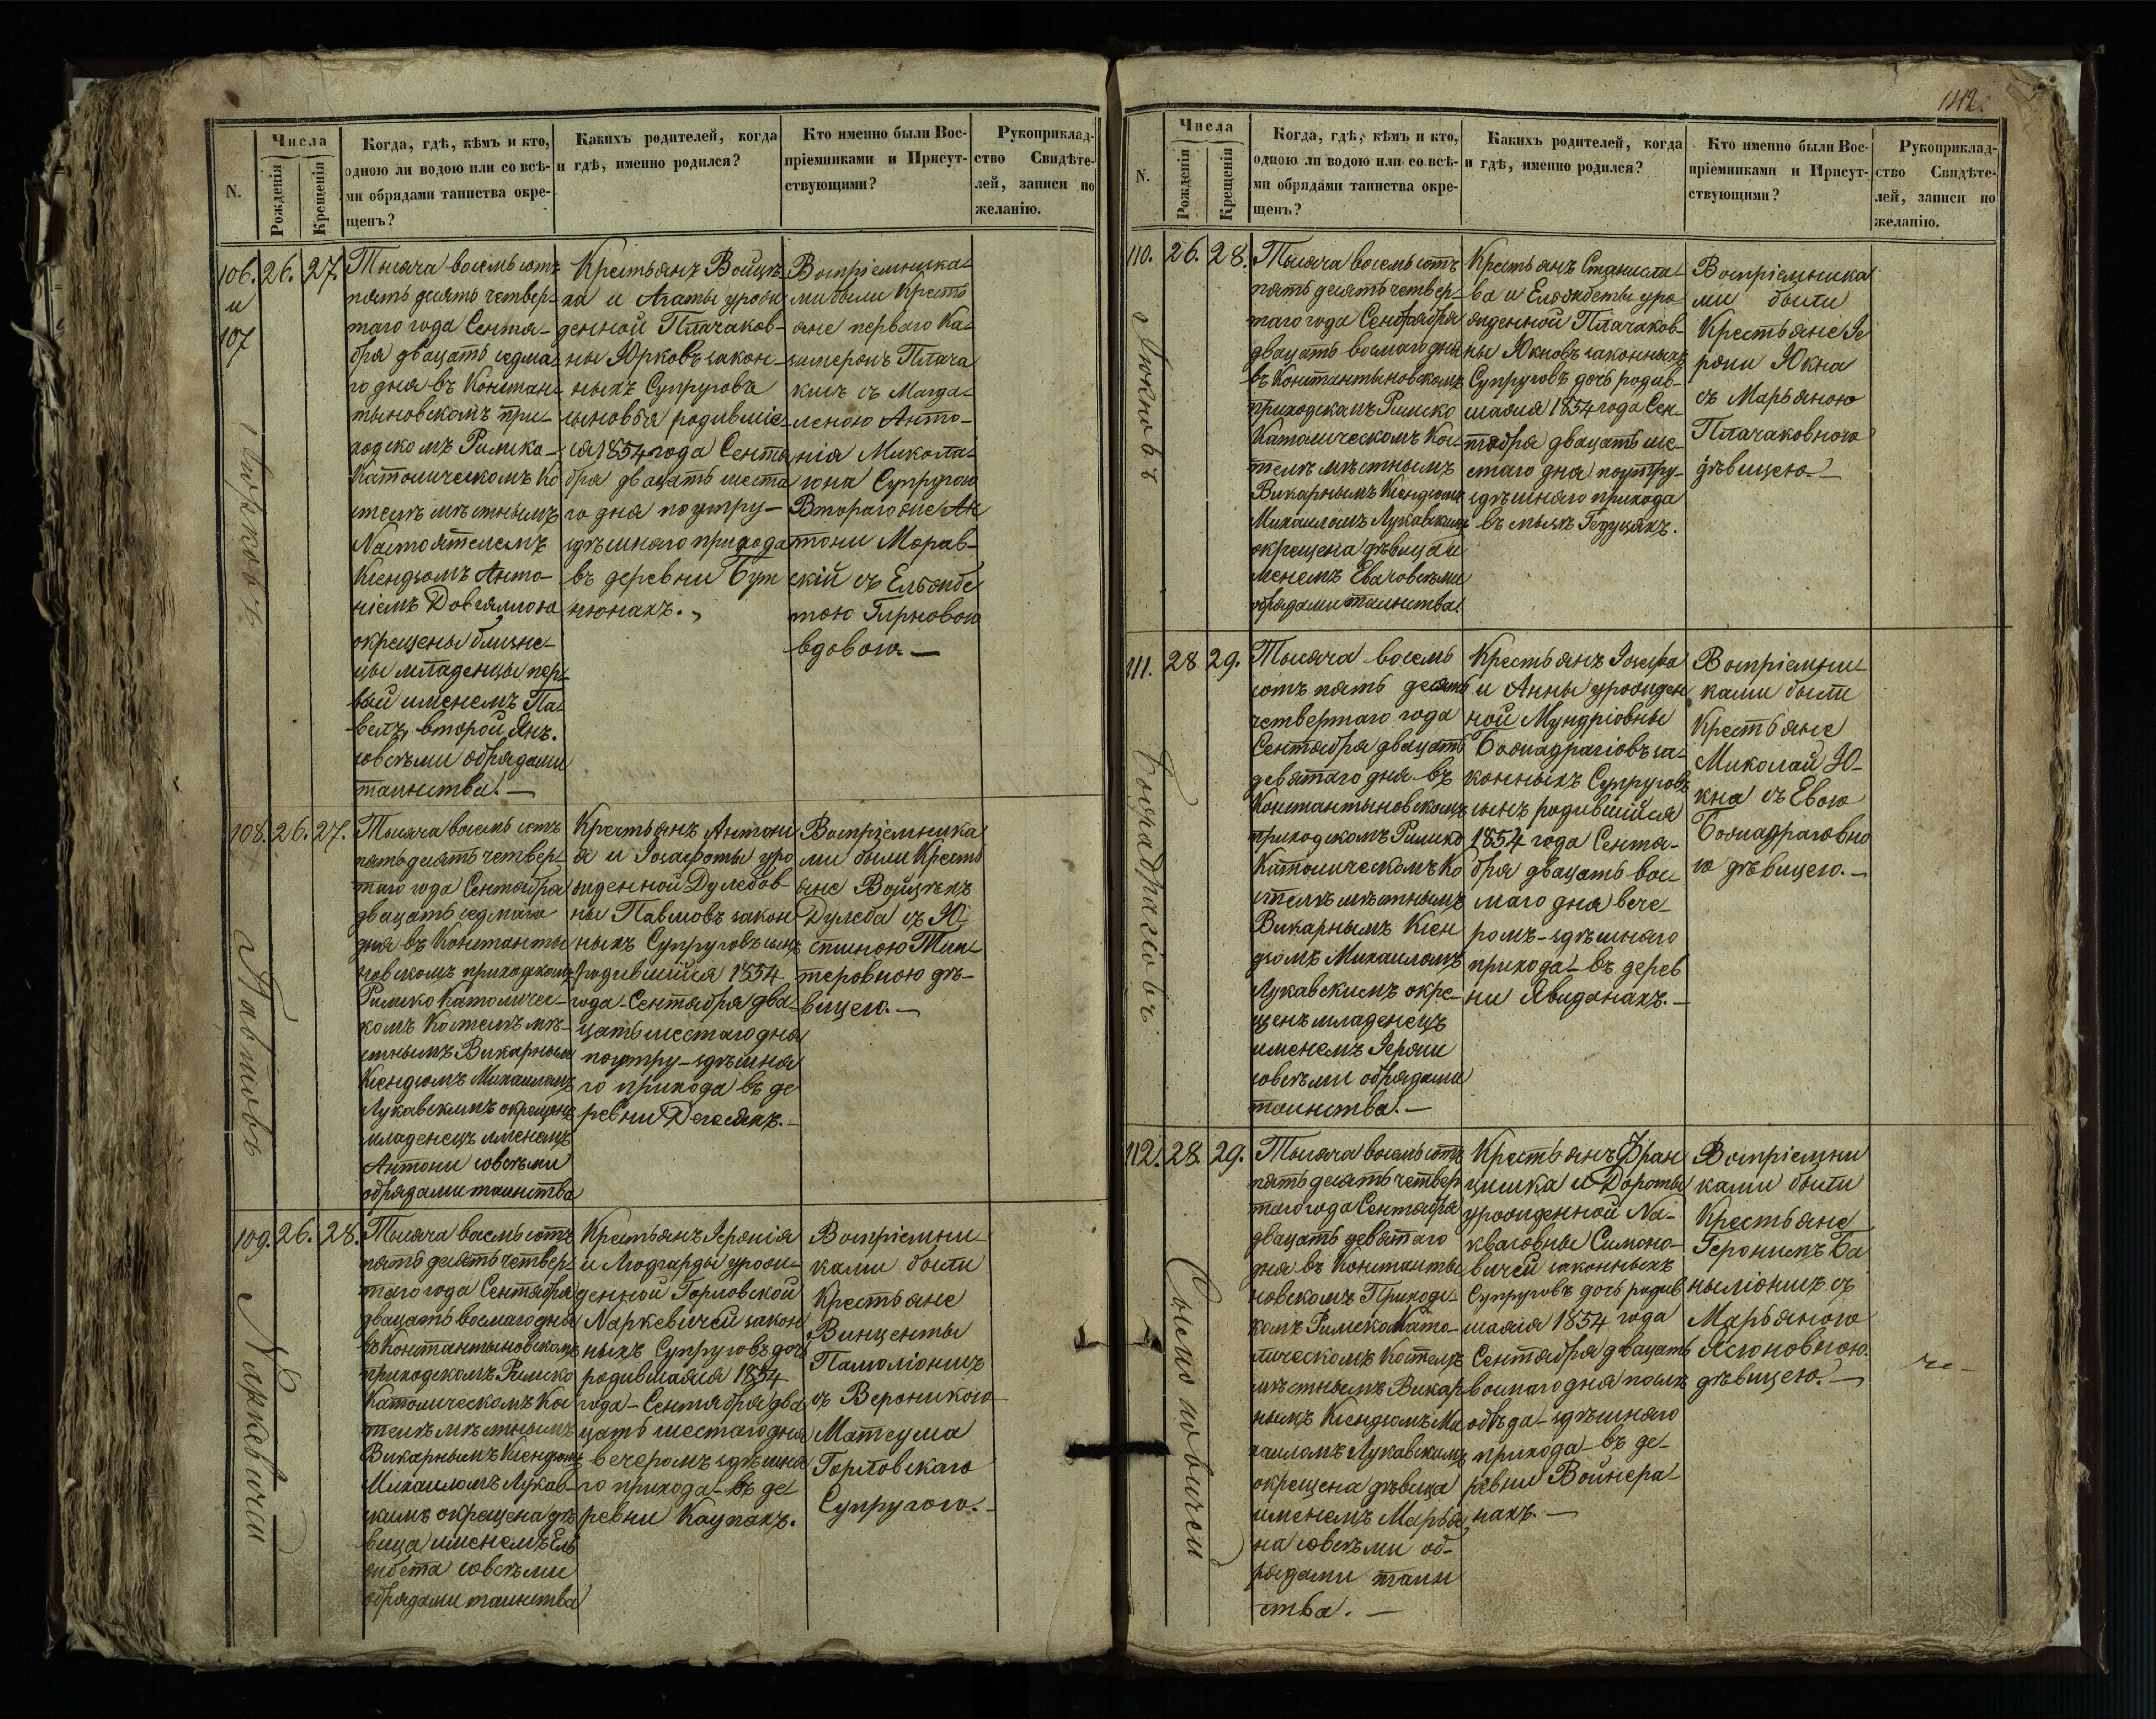 N.
Числа
Рожденія
Крещенія
Когда, гдѣ, кѣмъ и кто,
одною ли водою или со всѣ-
ми обрядами таинства окре-
щенъ?
Какихъ родителей, когда
и гдѣ, именно родился?
Кто именно были Вос-
пріемниками и Присут-
ствующими?
Рукоприклад-
ство Свидѣте-
лей, записи по
желанію.
106.
и
107
26.
27.
Юрковъ
Тысяча восемьсотъ
пять десятъ четвер-
таго года Сентя-
бря двацать седма-
го дня въ Констан-
тыновскомъ при-
ходскомъ Римско-
Католическомъ Ко
стелѣ мѣстнымъ
Настоятелемъ
Ксендзомъ Анто-
ніемъ Довгялломъ
окрещены близне-
цы младенцы пер-
вый именемъ Па-
велъ, второй Янъ.
совсѣми обрядами
таинства. —
Крестьянъ Войцѣ-
ха и Агаты урож
денной Плачаков-
ны Юрковъ закон-
ныхъ Супруговъ
сыновья родившіе-
ся 1854 года Сентя
бря двацать шеста
го дня поутру —
здѣшняго прихода
въ деревни Бут
нюнахъ.
Воспріемника-
ми были Кресть
яне перваго Ка-
зимеромъ Плача
кисъ съ Магда-
леною Анто-
нія Микола-
юна Супругою
Втораго же Ан
тониМорав-
скій съ Ельжбе
тою Гирновою
вдовою. —
108.
26.
27.
Павловъ
Тысяча восемь сотъ
пять десятъ четвер-
таго года Сентября
двацать седмаго
дня въ Константы
новскомъ приходскомъ
Римско Католичес-
комъ Костелѣ мѣ-
стнымъ Викарнымъ
Ксендзомъ Михаиломъ
Лукавскимъ окрещенъ
младенецъ именемъ
Антони совсѣми
обрядами таинства
Крестьянъ Антони
я и Розафоты уро
жденной Дулебов-
ны Павловъ закон
ныхъ Супруговъ сынъ
родившійся 1854
года — Сентября два-
цать шестаго дня
поутру — здѣшня
го прихода въ де
ревни Дегесяхъ. —
Воспріемника
ми были Кресть
яне Войцѣхъ
Дулеба съ Ю-
стиною
теровною дѣ-
вицею. —
109.
26.
28.
Наркевичей
Тысяча восемь сотъ
пять десятъ четвер-
таго года Сентября
двацать восмаго дня
въ Константыновскомъ
приходскомъ Римско
Католическомъ Кос
телѣ мѣстнымъ
Викарнымъ Ксендзомъ
Михаиломъ Лукав-
скимъ окрещена дѣ
вица именемъ Ель
жбета совсѣми
обрядами таинства
Крестьянъ Іеронія
и Людгарды урож-
денной Горловской
Наркевичей закон
ныхъ Супруговъ дочь
родившаяся 1854
года — Сентября два
цать шестаго дня
вечеромъ здѣшня
го прихода — въ де
ревни Каупахъ.
Воспріемни-
ками были
Крестьяне
Винценты
Памоліонисъ
съ Вероникою
Матеуша
Горловскаго
Супругою. —
1112.
N.
Числа
Рожденія
Крещенія
Когда, гдѣ, кѣмъ и кто,
одною ли водою или со всѣ-
ми обрядами таинства окре-
щенъ?
Какихъ родителей, когда
и гдѣ, именно родился?
Кто именно были Вос-
пріемниками и Присут-
ствующими?
Рукоприклад-
ство Свидѣте-
лей, записи по
желанію.
110.
26.
28.
Юкновъ
Тысяча восемь сотъ
пять десятъ четвер-
таго года Сентября
двацать восмаго дня
въ Константыновскомъ
приходскомъ Римско
Католическомъ Кос-
телѣ мѣстнымъ
Викарнымъ Ксендзомъ
Михаиломъ Лукавскимъ
окрещена дѣвица и
менемъ Ева совсѣми
обрядами таинства.
Крестьянъ Станисла-
ва и Ельжбеты уро
жденной Плачаков-
ны Юкновъ законныхъ
Супруговъ дочь родив-
шаяся 1854 года Сен-
тября двацать ше-
стаго дня поутру —
здѣшняго прихода
въ мызѣ Гедуцяхъ.
Воспріемника
ми были
Крестьяне Іе
рони Юкна
съ Марьяною
Плачаковною
дѣвицею. —
111.
28
29.
Бопадрагіовъ
Тысяча восемь
сотъ пять десятъ
четвертаго года
Сентября двацать
девятаго дня въ
Константыновскомъ
приходскомъ Римско
Католическомъ Ко
стелѣ мѣстнымъ
Викарнымъ Ксен
дзомъ Михаиломъ
Лукавскимъ окре-
щенъ младенецъ
именемъ Іерони
совсѣми обрядами
таинства. —
Крестьянъ Іосифа
и Анны урожден
ной Мундріовны
за-
конныхъ Супруговъ
сынъ родившійся
1854 года Сентя-
бря двацать вос
маго дня вече-
ромъ — здѣшняго
прихода — въ дерев
ни Явидонахъ. —
Воспріемни-
ками были
Крестьяне
Миколай Ю-
кна съ Евою
ю дѣвицею. —
112.
28.
29.
Симоновичей
Тысяча восемь сотъ
пять десятъ четвер
таго года Сентября
двацать девятаго
дня въ Константы
новскомъ Приходс-
комъ Римско Като-
лическомъ Костелѣ
мѣстнымъ Викар
нымъ Ксендзомъ Ми
хаиломъ Лукавскимъ
окрещена дѣвица
именемъ Марья
на совсѣми об-
рядами таин
ства. —
Крестьянъ Фран
цишка и Дороты
урожденной На-
кваговны Симоно-
вичей законныхъ
Супруговъ дочь родив
шаяся 1854 года
Сентября двацать
восмаго дня послѣ
обѣда — здѣшняго
прихода — въ де-
ревни Войнера-
нахъ. —
Воспріемни
ками были
Крестьяне
Іеронимъ Ба
ныліонисъ съ
Марьяною
Ясюновною.
дѣвицею. —